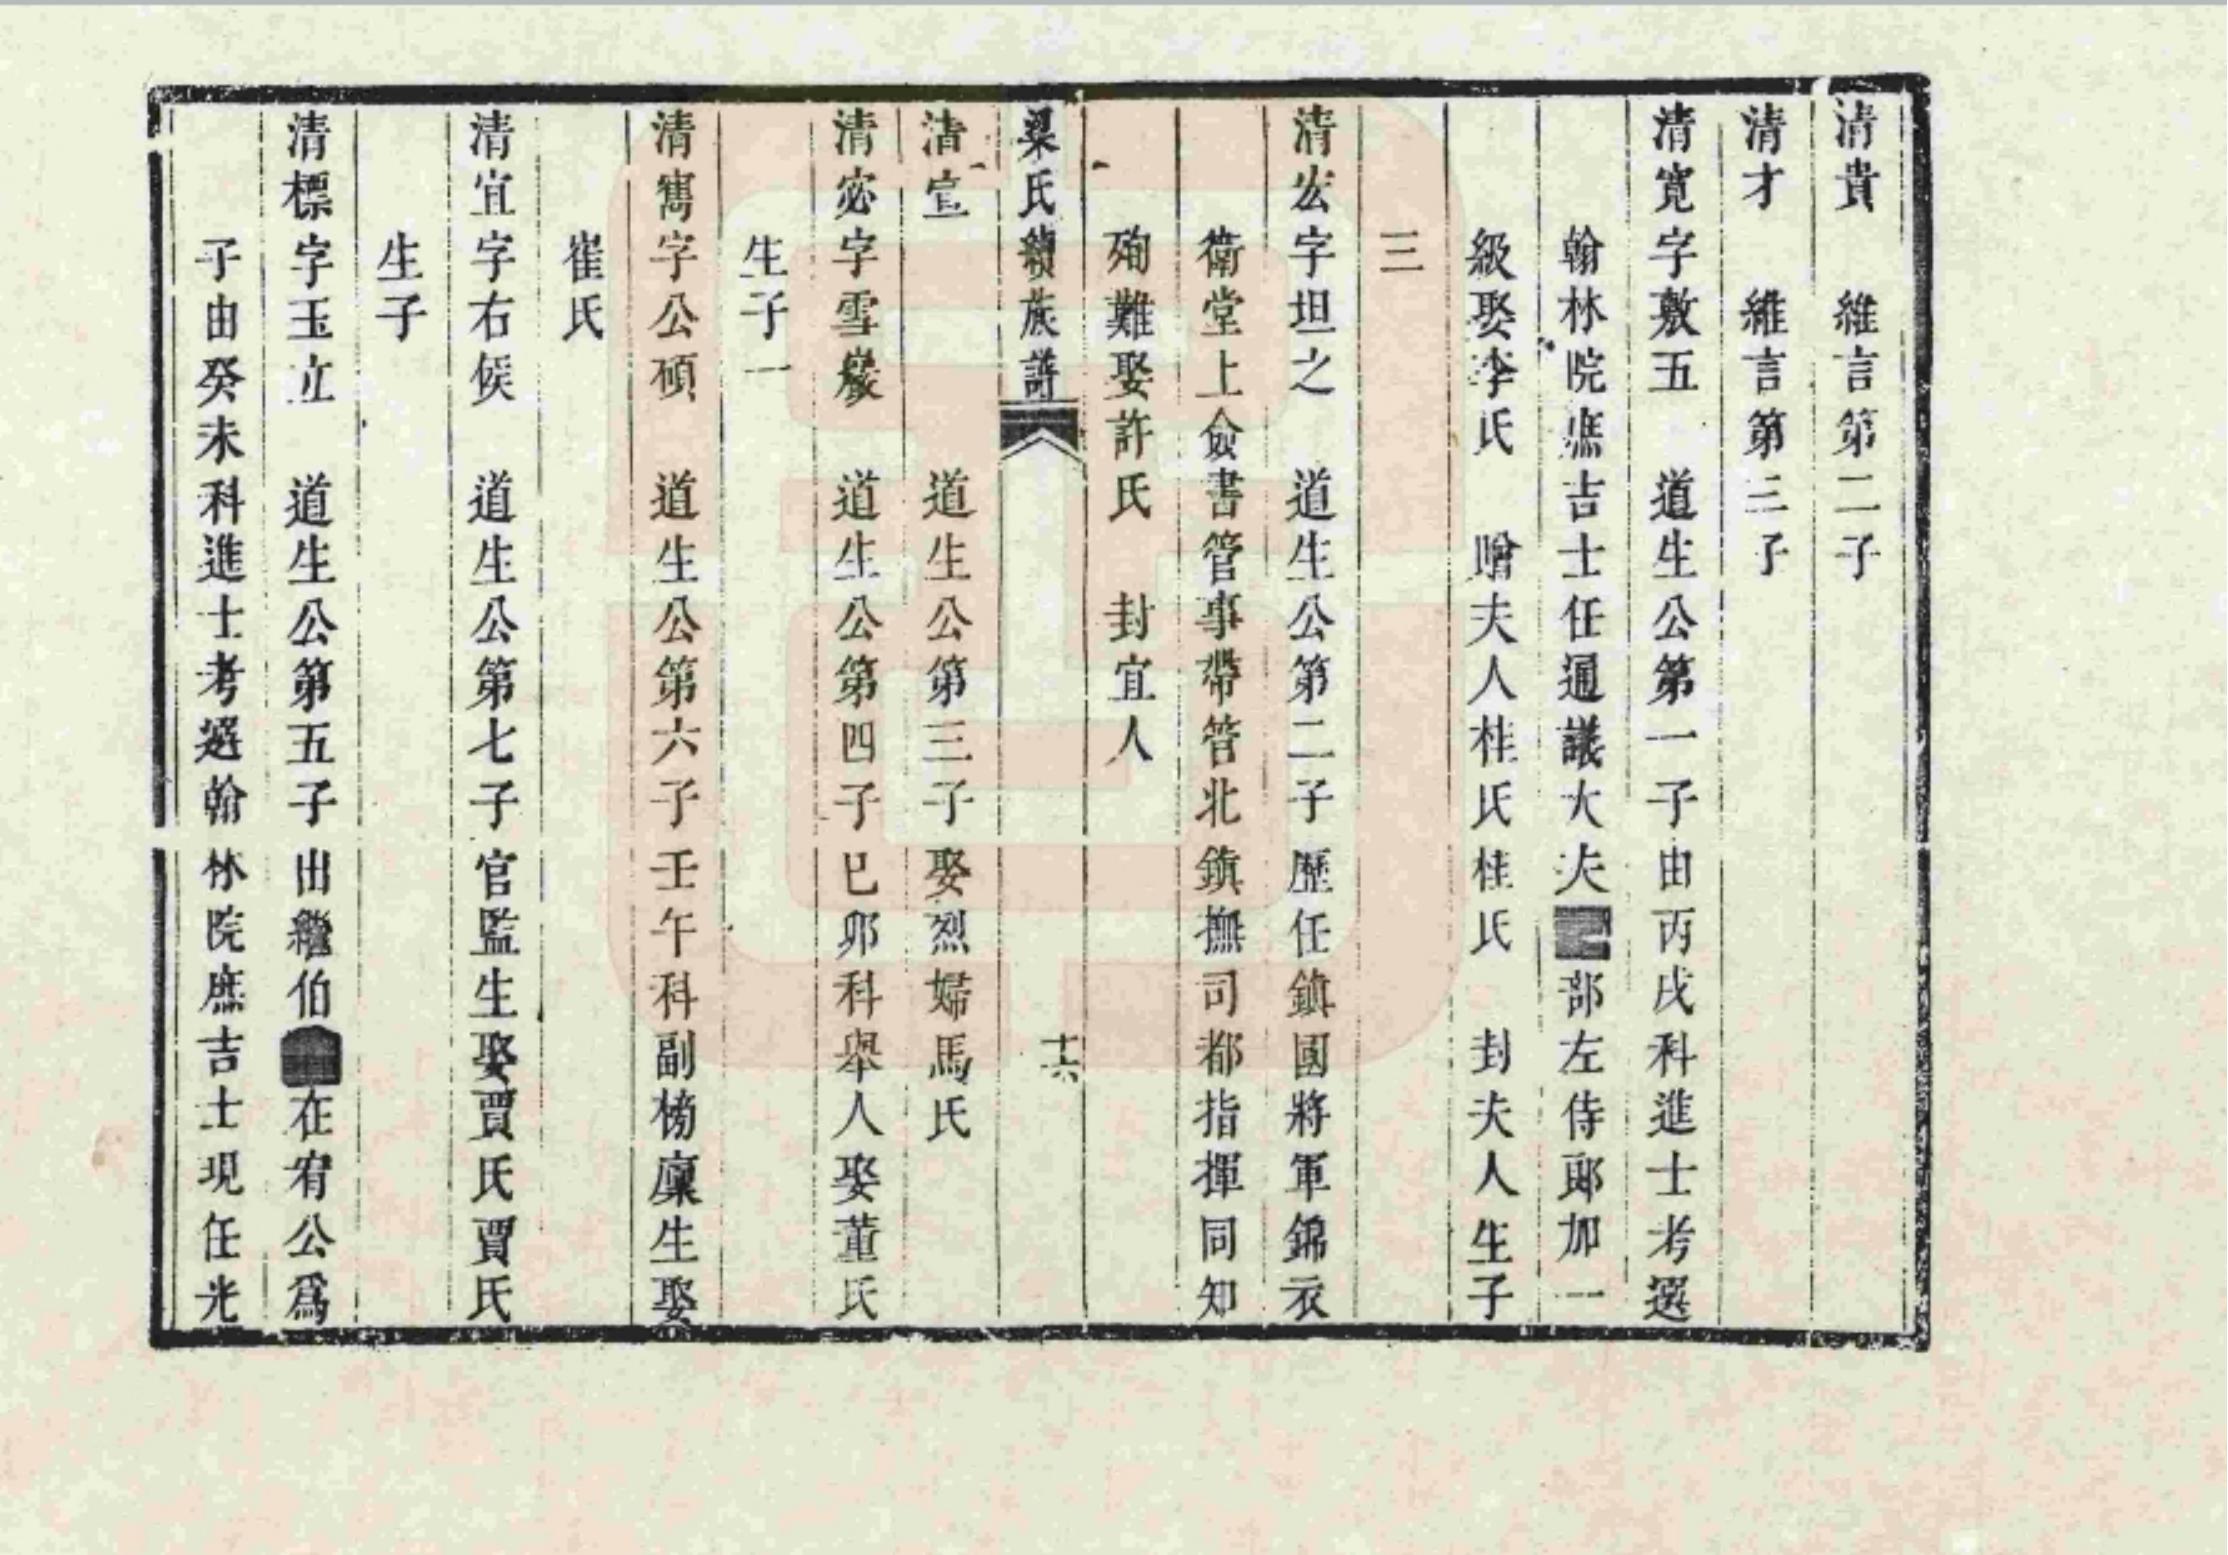 清貴　維言第二子
清才　維言第三子
清寬字敷五　道生公第一子由丙戌科進士考選
翰林院庶吉士任通議大夫部左侍郎加一
級娶李氏　贈夫人桂氏桂氏　封夫人生子
三
清宏字坦之　道生公第二子歷任鎮國將軍錦衣
衛堂上僉書管事帶管北鎮撫司都指揮同知
殉難娶許氏　封宜人
梁氏續族譜　十六
清宣　道生公第三子娶烈婦馬氏
清宓字雪巖　道生公第四子已卯科舉人娶董氏
生子一
清寯字公碩　道生公第六子壬午科副榜廩生娶
崔氏
清宜字右侯　道生公第七子官監生娶賈氏賈氏
生子
清標字玉立　道生公第五子出繼伯在宥公爲
子由癸未科進士考選翰林院庶吉士現任光